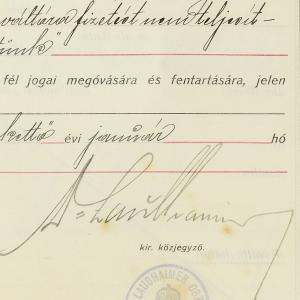 váltója fizetését nem teljesít-
tünk"
fél jogai megóvására és fentartására, jelen
kettő" évi január hó
kir. közjegyző.
LAUGHAIMER